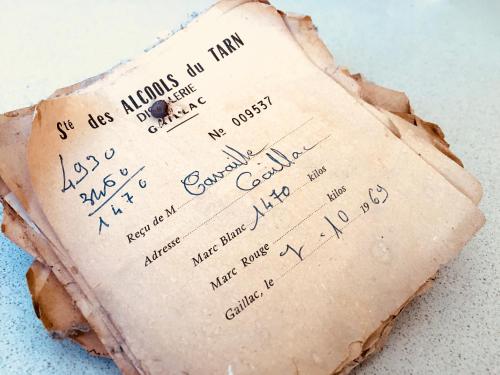 Sté des ALCOOLS du TARN
DISTILLERIE
GAILLAC
Nº 009537
4930
3460
1470
Reçu de M Cavaillé
Adresse Gaillac
Marc Blanc 1470 kilos
Marc Rouge kilos
Gaillac, le 7 - 10 1969